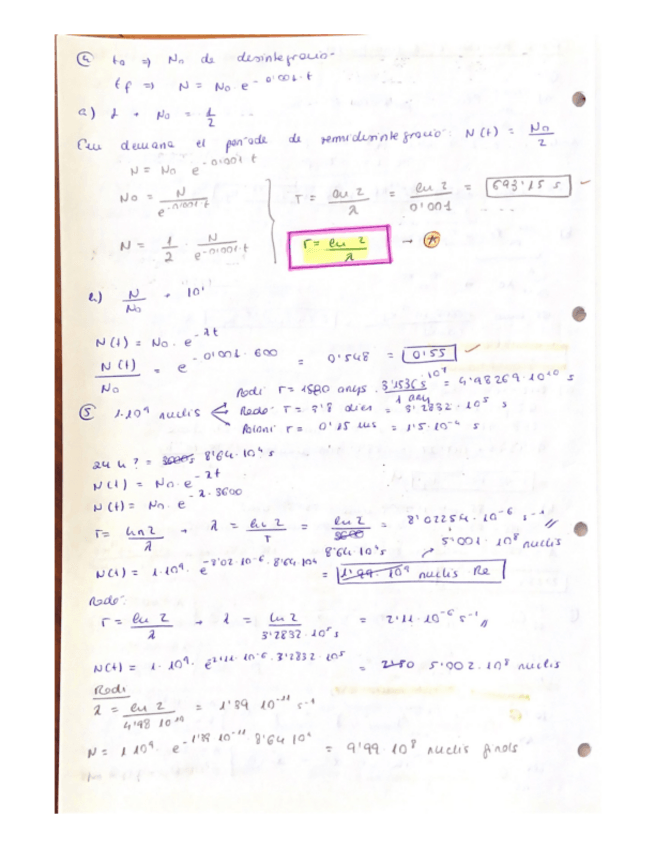 ④ to => No de desintegració.
tf => N = No · e^-0'001·t
a) t → No = 1/2
Ens demana el període de semidesintegració: N(t) = No/2
N = No e^-0'001 t
No = N / e^-0'001·t
T = ln 2 / λ = ln 2 / 0'001 = 693'15 s
N = 1/2 · N / e^-0'001·t
T = ln 2 / λ → Ⓐ
b) N/No
N(t) = No · e^-λt
N(t)/No = e^-0'001·600 = 0'548 = 0'55
Radi T = 1580 anys · 3'1536 10⁷ s / 1 any = 4'98269·10¹⁰ s
⑤ 1·10⁹ nuclis Rado: T = 3'8 dies = 3'2832·10⁵ s
Poloni T = 0'15 ms = 1'5·10⁻⁴ s
24 h? = 3600s 8'64·10⁴ s
N(t) = No · e^-λt
N(t) = No · e^-λ·3600
T = ln 2 / λ → λ = ln 2 / T = ln 2 / 3600 = 8'02254·10⁻⁶ s⁻¹
8'64·10⁴ s
5'001·10⁸ nuclis
N(t) = 1·10⁹ · e^-8'02·10⁻⁶·8'64·10⁴ = 1'99·10⁹ nuclis Ra
Rado:
T = ln 2 / λ → λ = ln 2 / 3'2832·10⁵ s = 2'11·10⁻⁶ s⁻¹
N(t) = 1·10⁹ · e^2'11·10⁻⁶·3'2832·10⁵ = 5'002·10⁸ nuclis
Radi
λ = ln 2 / 4'98 10¹⁰ = 1'39·10⁻¹¹ s⁻¹
N = 1·10⁹ · e^-1'39 10⁻¹¹·8'64 10⁴ = 9'99·10⁸ nuclis finals